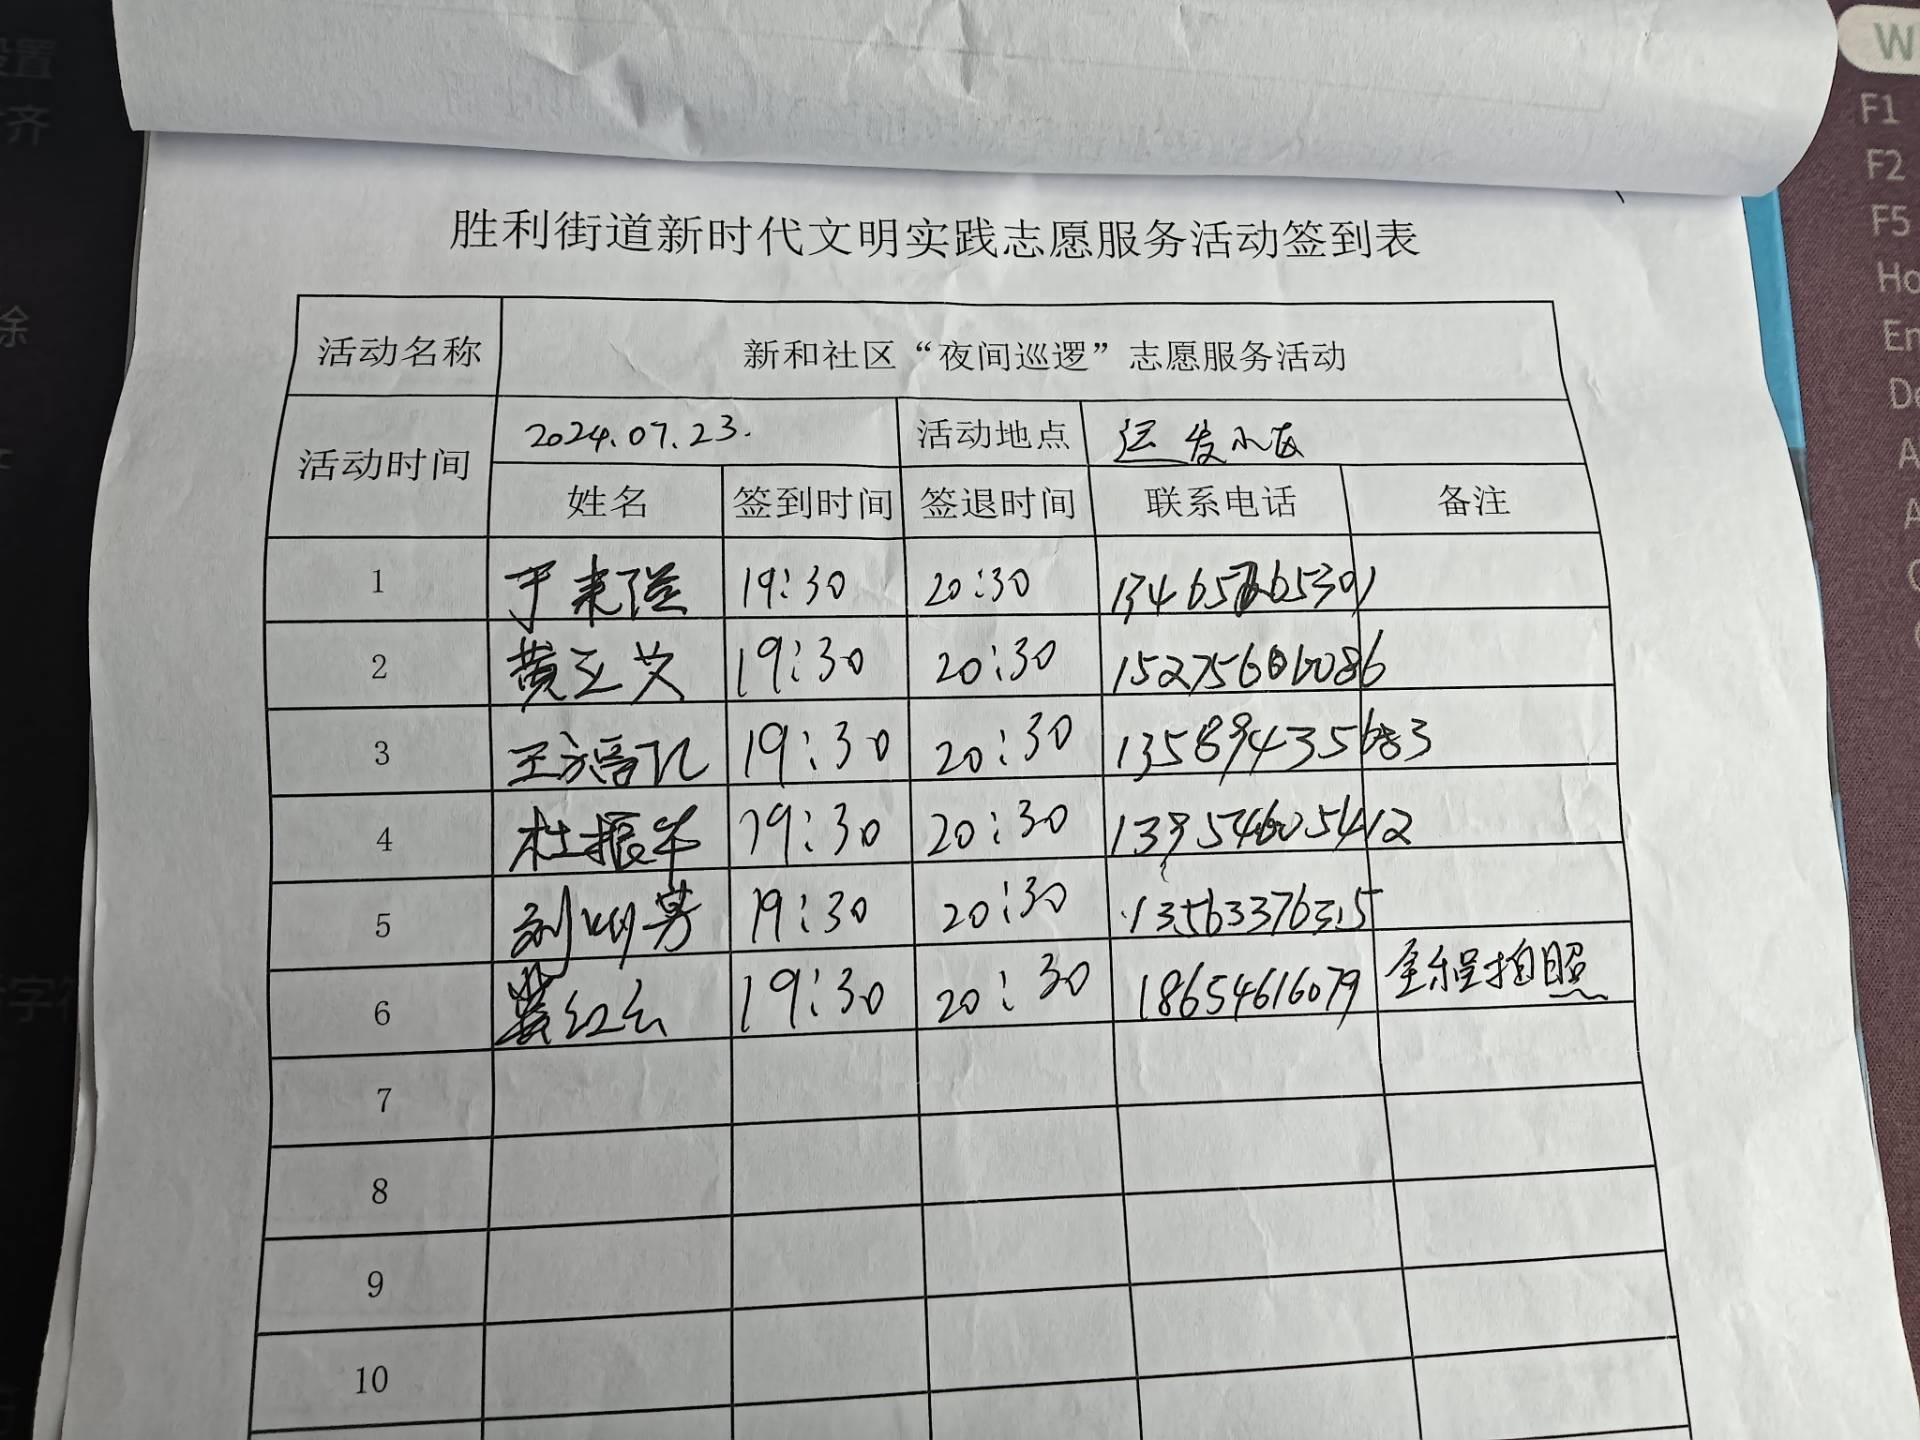 胜利街道新时代文明实践志愿服务活动签到表
活动名称 新和社区“夜间巡逻”志愿服务活动
活动时间 2024.07.23. 活动地点 运发小区
姓名 签到时间 签退时间 联系电话 备注
1 于来 19:30 20:30
2 黄玉 19:30 20:30
3 王 19:30 20:30
4 杜振华 19:30 20:30
5 刘明芳 19:30 20:30 13563376315
6 红云 19:30 20:30 18654616079 全程拍照
7
8
9
10
置
齐
除
字符
W
F1
F2
F5
Ho
En
De
A
A